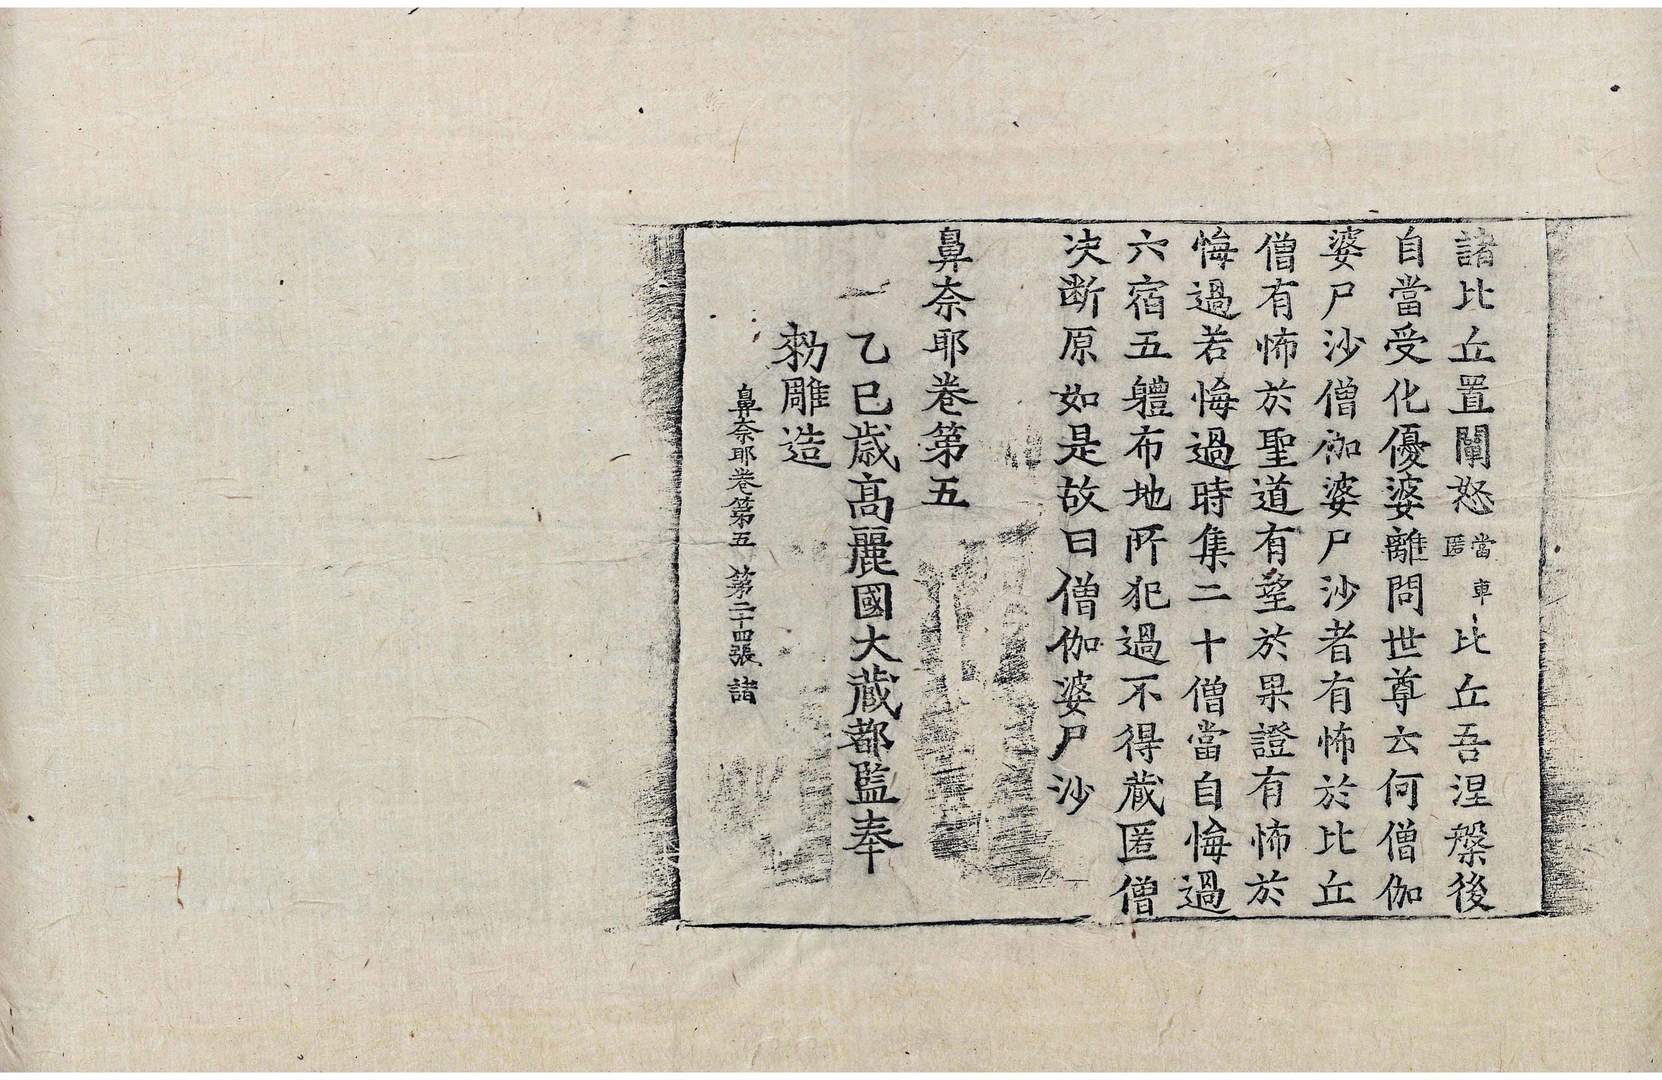 諸比丘置闡怒當車匿比丘吾涅槃後
自當受化優婆離問世尊云何僧伽
婆尸沙僧伽婆尸沙者有怖於比丘
僧有怖於聖道有望於果證有怖於
悔過若悔過時集二十僧當自悔過
六宿五軆布地所犯過不得蔵匿僧
决断原如是故曰僧伽婆尸沙
鼻奈耶卷第五
乙巳歲高麗國大藏都監奉
勑雕造
鼻奈耶卷第五 第二十四張 諸